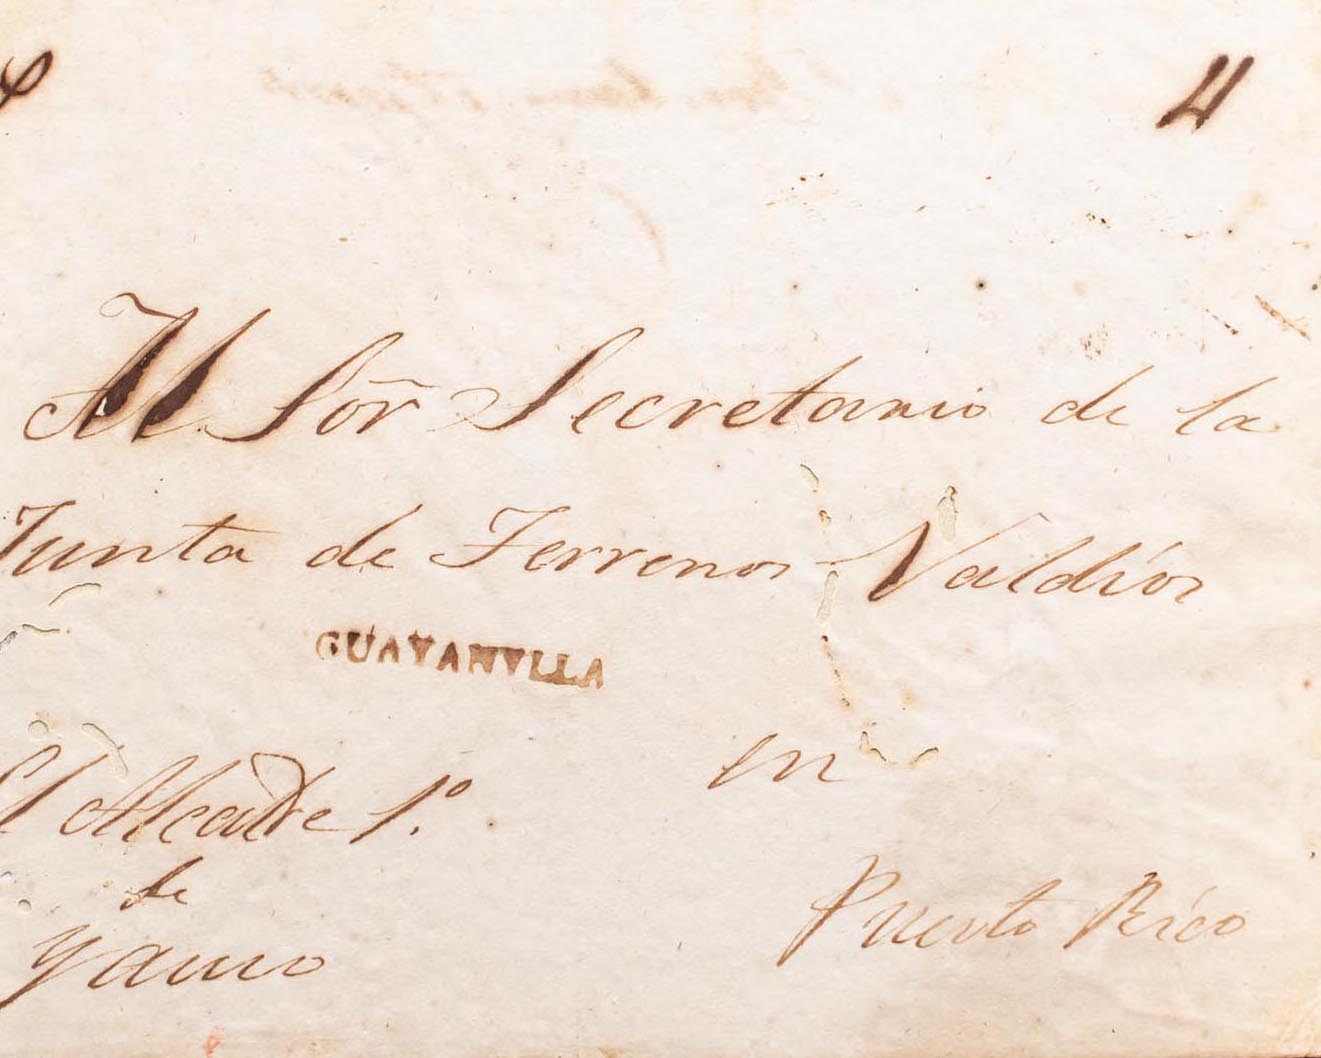 4
Al Sõr Secretario de la
Junta de Terrenos Valdíos
GUAYANILLA
en
El Alcalde 1.º
de
Yauco
Puerto Rico